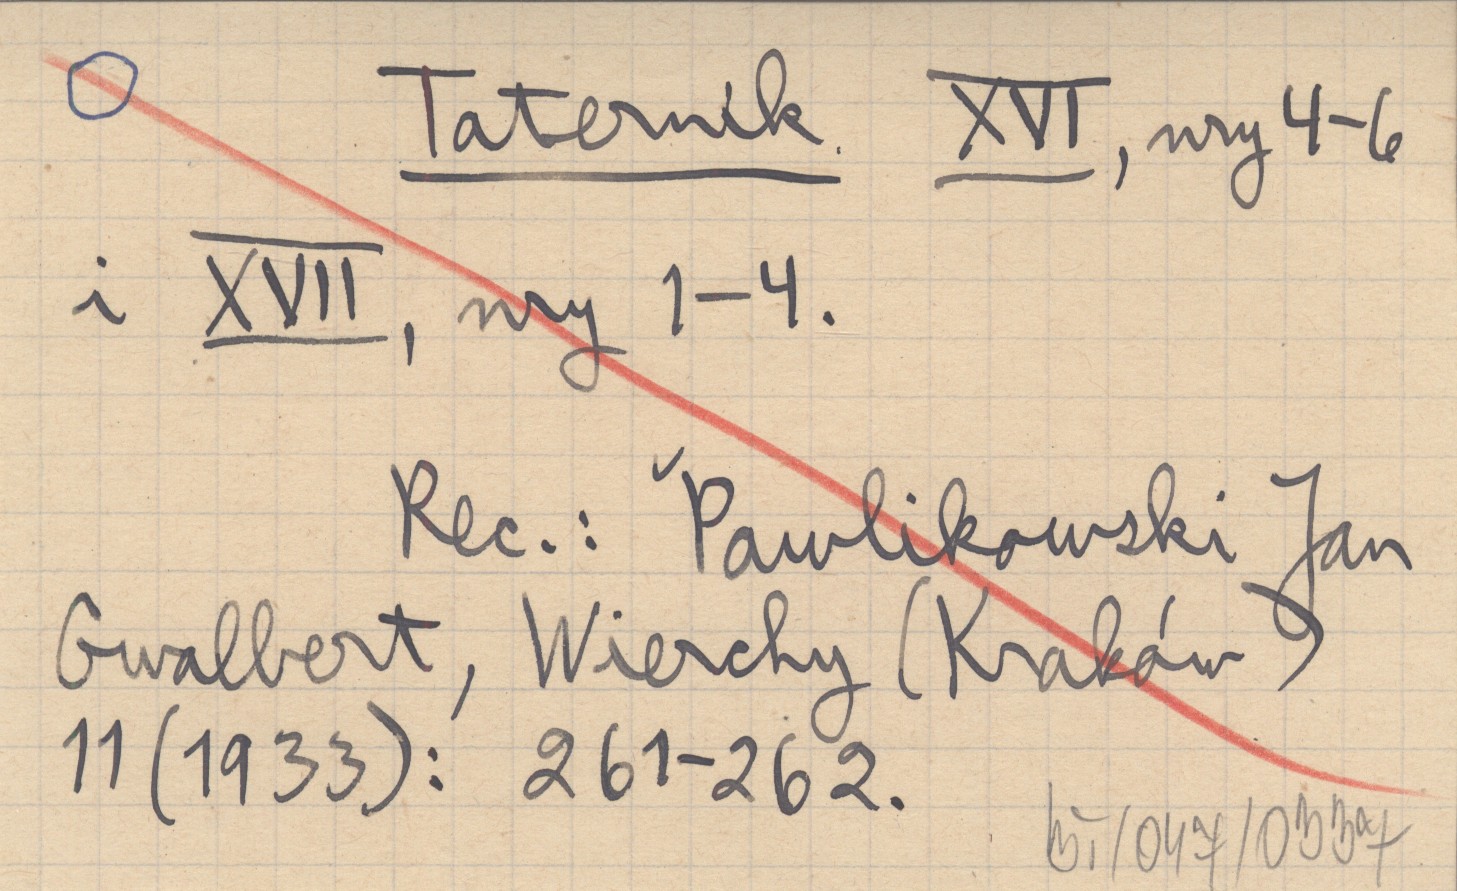 Taternik. XVI, nry 4-6
i XVII, nry 1-4.
Rec.: Pawlikowski Jan
Gwalbert, Wierchy (Kraków)
11 (1933): 261-262.
/047/0337